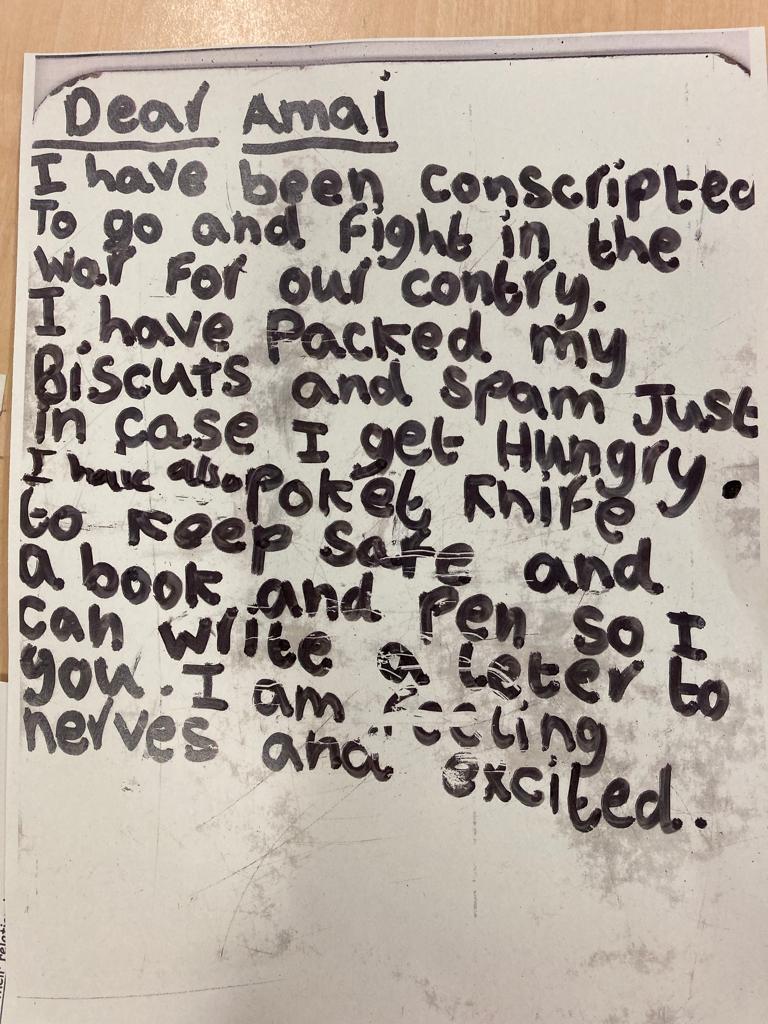 Dear Amal
I have been conscripted
To go and fight in the
war For our contry.
I have Packed my
Biscuts and spam Just
in case I get Hungry.
I have also poket knife
to keep safe and
a book and Pen so I
can write a leter to
you. I am feeling
nerves and excited.